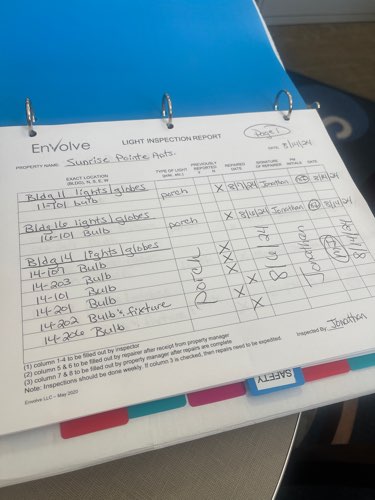 EnVolve
LIGHT INSPECTION REPORT
Page 1
PROPERTY NAME: Sunrise Pointe Apts. DATE 8/14/24
EXACT LOCATION (BLDG, N, S, E, W) TYPE OF LIGHT (pole, etc.) PREVIOUSLY REPORTED Y N REPAIRED DATE SIGNATURE OF REPAIRER PM INITIALS DATE
Bldg 11 lights/globes
11-101 bulb porch X 8/14/24 Jonathan 8/14/24
Bldg 16 lights/globes
16-101 Bulb porch X 8/14/24 Jonathan 8/14/24
Bldg 14 lights/globes
14-107 Bulb X
14-203 Bulb X
14-101 Bulb X
14-201 Bulb X
14-202 Bulb's fixture X
14-206 Bulb X
porch Jonathan 8/14/24
(1) column 1-4 to be filled out by inspector
(2) column 5 & 6 to be filled out by repairer after receipt from property manager
(3) column 7 & 8 to be filled out by property manager after repairs are complete
Note: Inspections should be done weekly. If column 3 is checked, then repairs need to be expedited.
Inspected By: Jonathan
Envolve LLC - May 2023
SAFETY